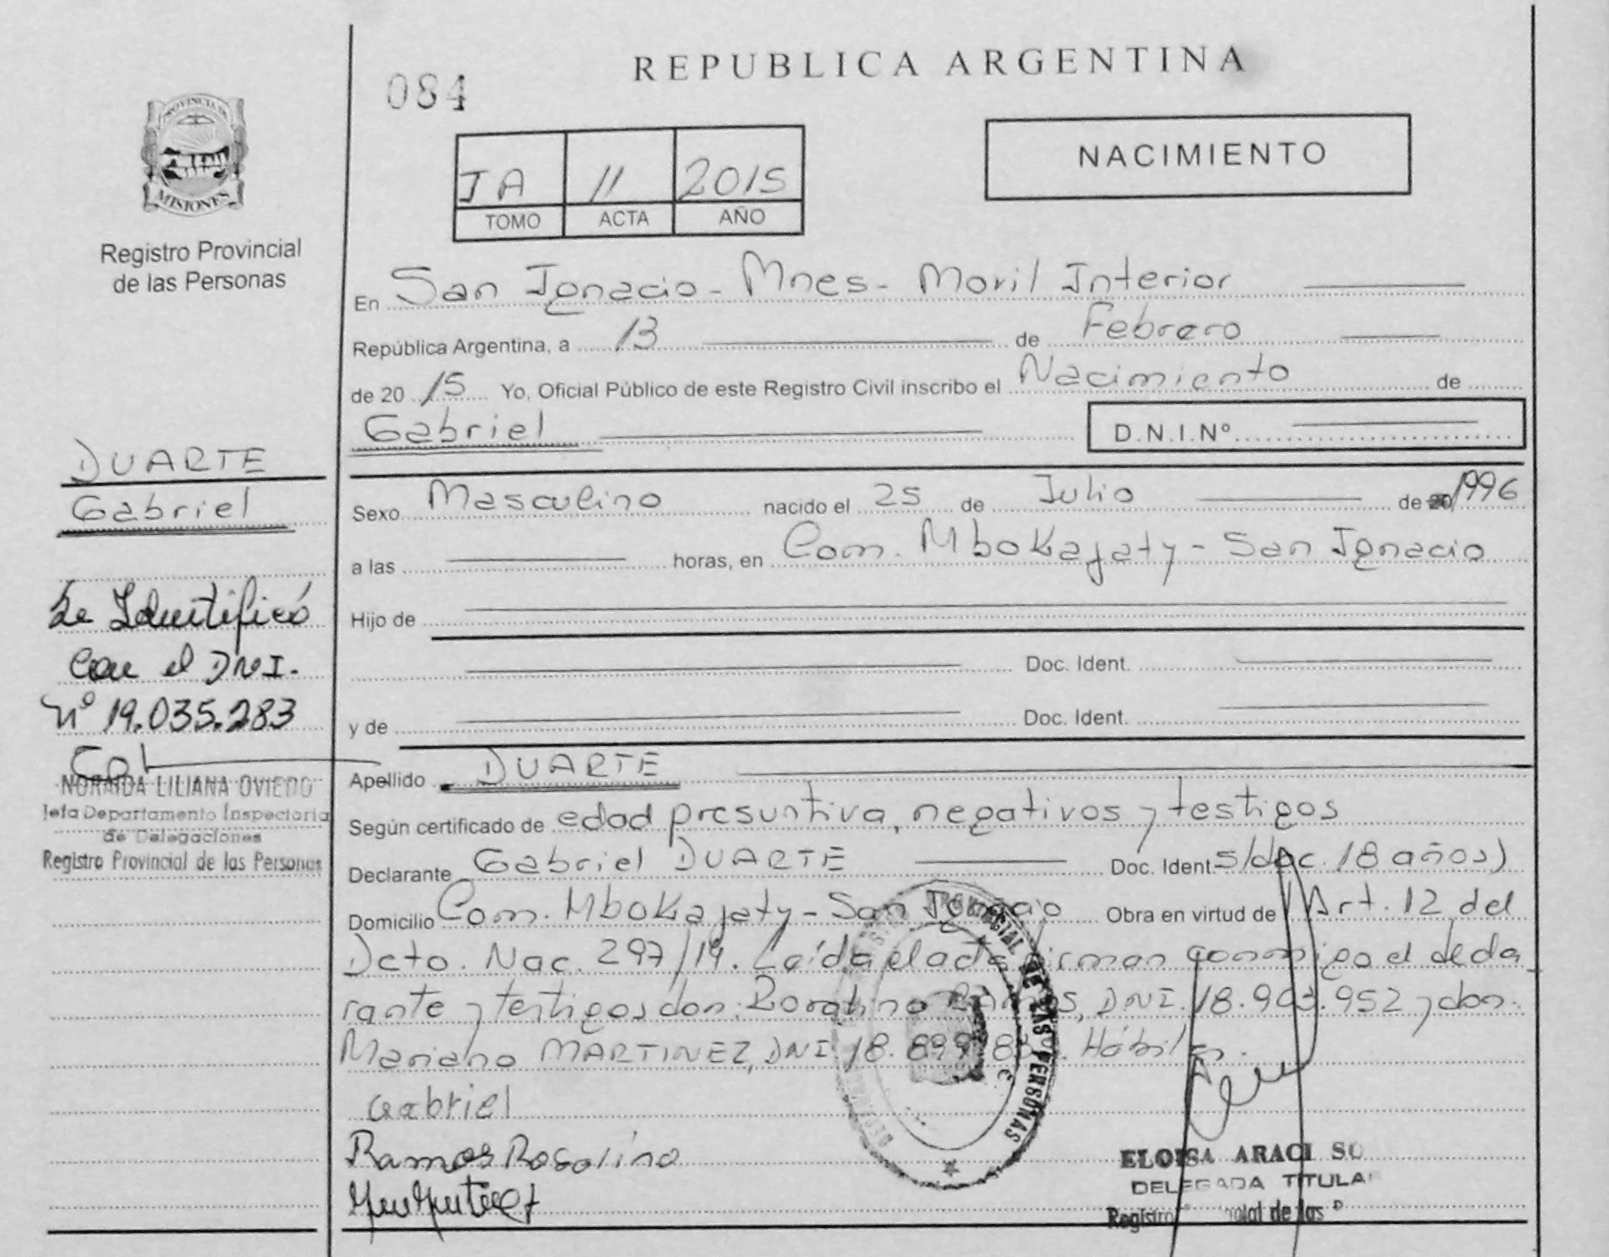 REPUBLICA ARGENTINA
084
PROVINCIA DE
MISIONES
Registro Provincial
de las Personas
JA 11 2015
TOMO ACTA AÑO
NACIMIENTO
En San Ignacio - Mnes - Movil Interior
República Argentina, a 13 de Febrero
de 20 15 Yo, Oficial Público de este Registro Civil inscribo el Nacimiento de
Gabriel D.N.I.Nº
DUARTE
Gabriel
Sexo Masculino nacido el 25 de Julio de 1996
a las horas, en Com. Mbokajaty - San Ignacio
Hijo de
Doc. Ident.
y de Doc. Ident.
Se Identificó
con el DNI.
Nº 19.035.283
NORAIDA LILIANA OVIEDO
Jefa Departamento Inspectoria
de Delegaciones
Registro Provincial de las Personas
Apellido DUARTE
Según certificado de edad presuntiva, negativos y testigos
Declarante Gabriel DUARTE Doc. Ident s/doc. 18 años)
Domicilio Com. Mbokajaty - San Ignacio Obra en virtud de Art. 12 del
Dcto. Nac. 297/19. Leída el acta firman conmigo el decla
rante y testigos don: RAMOS, DNI. 18.903.952 y don
Mariano MARTINEZ, DNI 18.899 Hábiles.
Gabriel
Ramos Rosalino
PROVINCIAL DE LAS PERSONAS
ELOISA ARACI SO
DELEGADA TITULA
Registro de las P